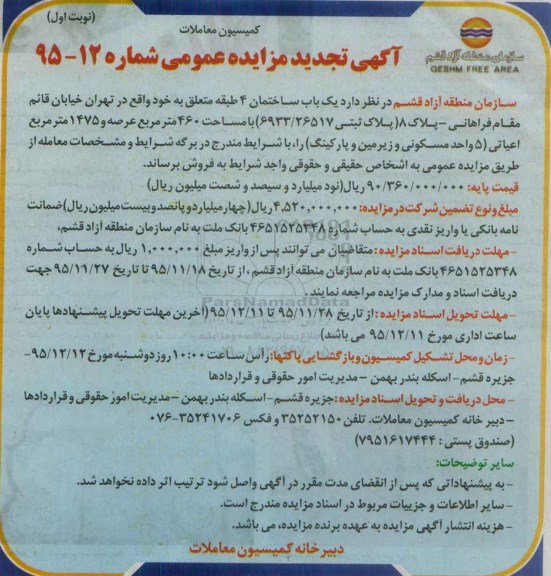 (نوبت اول)
کمیسیون معاملات
آگهی تجدید مزایده عمومی شماره ۱۲-۹۵
سازمان منطقه آزاد قشم
QESHM FREE AREA
سازمان منطقه آزاد قشم در نظر دارد یک باب ساختمان ۴ طبقه متعلق به خود واقع در تهران خیابان قائم
مقام فراهانی - پلاک ۸ (پلاک ثبتی ۶۹۳۳/۲۶۵۱۷) با مساحت ۴۶۰ متر مربع عرصه و ۱۴۷۵ متر مربع
اعیانی (۵ واحد مسکونی و زیرمین و پارکینگ) را، با شرایط مندرج در برگه شرایط و مشخصات معامله از
طریق مزایده عمومی به اشخاص حقیقی و حقوقی واجد شرایط به فروش برساند.
قیمت پایه: ۹۰/۳۶۰/۰۰۰/۰۰۰ ریال (نود میلیارد و سیصد و شصت میلیون ریال)
مبلغ و نوع تضمین شرکت در مزایده: ۴,۵۲۰,۰۰۰,۰۰۰ ریال (چهار میلیارد و پانصد و بیست میلیون ریال) ضمانت
نامه بانکی یا واریز نقدی به حساب شماره ۴۶۵۱۵۲۵۳۴۸ بانک ملت به نام سازمان منطقه آزاد قشم،
- مهلت دریافت اسناد مزایده: متقاضیان می توانند پس از واریز مبلغ ۱,۰۰۰,۰۰۰ ریال به حساب شماره
۴۶۵۱۵۲۵۳۴۸ بانک ملت به نام سازمان منطقه آزاد قشم، از تاریخ ۹۵/۱۱/۱۸ تا تاریخ ۹۵/۱۱/۲۷ جهت
دریافت اسناد و مدارک مزایده مراجعه نمایند.
ParsNamadData
- مهلت تحویل اسناد مزایده: از تاریخ ۹۵/۱۱/۲۸ تا ۹۵/۱۲/۱۱ (آخرین مهلت تحویل پیشنهادها پایان
ساعت اداری مورخ ۹۵/۱۲/۱۱ می باشد)
- زمان و محل تشکیل کمیسیون و بازگشایی پاکتها: رأس ساعت ۱۰:۰۰ روز دوشنبه مورخ ۹۵/۱۲/۱۲-
جزیره قشم - اسکله بندر بهمن - مدیریت امور حقوقی و قراردادها
- محل دریافت و تحویل اسناد مزایده: جزیره قشم - اسکله بندر بهمن - مدیریت امور حقوقی و قراردادها
- دبیر خانه کمیسیون معاملات. تلفن ۳۵۲۵۲۱۵۰ و فکس ۳۵۲۴۱۷۰۶-۰۷۶
(صندوق پستی : ۷۹۵۱۶۱۷۴۴۴)
سایر توضیحات:
- به پیشنهاداتی که پس از انقضای مدت مقرر در آگهی واصل شود ترتیب اثر داده نخواهد شد.
- سایر اطلاعات و جزییات مربوط در اسناد مزایده مندرج است.
- هزینه انتشار آگهی مزایده به عهده برنده مزایده، می باشد.
دبیر خانه کمیسیون معاملات